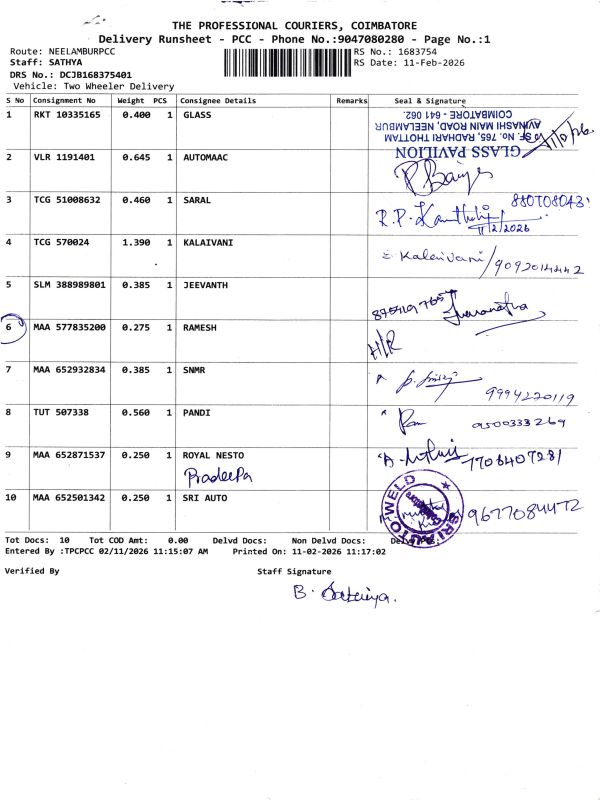 THE PROFESSIONAL COURIERS, COIMBATORE
Delivery Runsheet - PCC - Phone No.:9047080280 - Page No.:1
Route: NEELAMBURPCC
RS No.: 1683754
Staff: SATHYA
RS Date: 11-Feb-2026
DRS No.: DCJB168375401
Vehicle: Two Wheeler Delivery
S No Consignment No Weight PCS Consignee Details Remarks Seal & Signature
1 RKT 10335165 0.400 1 GLASS
GLASS PAVILION
SF. No. 765, RADAR THOTTAM
AVINASHI MAIN ROAD, NEELAMBUR
COIMBATORE - 641 062.
2 VLR 1191401 0.645 1 AUTOMAAC
3 TCG 51008632 0.460 1 SARAL
11/2/2026
4 TCG 570024 1.390 1 KALAIVANI
Kalaivani / 9092014442
5 SLM 388989801 0.385 1 JEEVANTH
6 MAA 577835200 0.275 1 RAMESH
H/R
7 MAA 652932834 0.385 1 SNMR
9994220119
8 TUT 507338 0.560 1 PANDI
9500333269
9 MAA 652871537 0.250 1 ROYAL NESTO
Pradeepa
7708407281
10 MAA 652501342 0.250 1 SRI AUTO
SRI AUTO WELD
9677084472
Tot Docs: 10 Tot COD Amt: 0.00 Delvd Docs: Non Delvd Docs:
Entered By :TPCPCC 02/11/2026 11:15:07 AM Printed On: 11-02-2026 11:17:02
Verified By Staff Signature